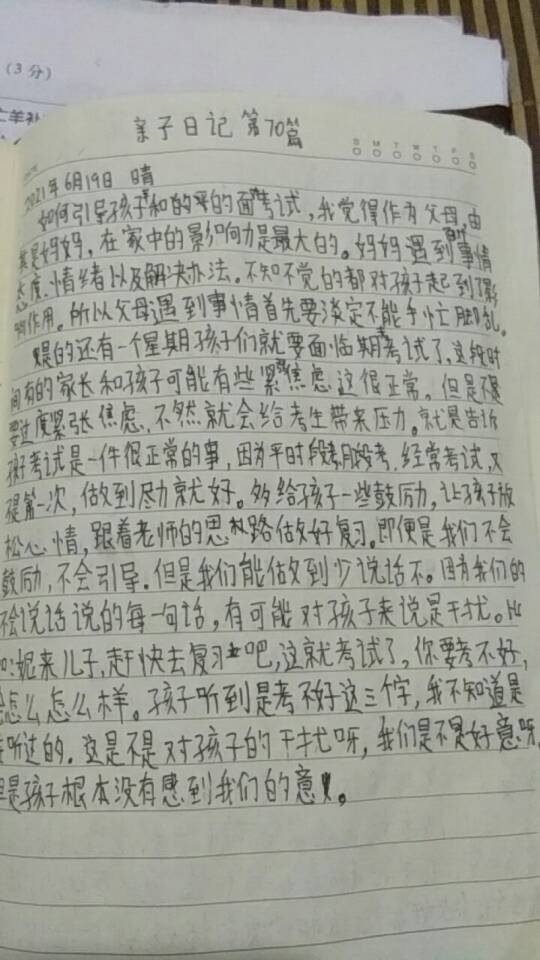 (3分)
亡羊补
亲子日记 第70篇
S M T W T F S
2021年6月19日 晴
如何引导孩子和的平的面考试，我觉得作为父母，由
其是妈妈，在家中的影响力是最大的。妈妈遇到事情
态度、情绪以及解决办法。不知不觉的都对孩子起到了影
响作用。所以父母遇到事情首先要淡定不能手忙脚乱。
是的还有一个星期孩子们就要面临期考试了，这段时
间有的家长和孩子可能有些紧焦虑这很正常。但是不是
要过度紧张焦虑，不然就会给考生带来压力。就是告诉
孩子考试是一件很正常的事，因为平时段考月段考，经常考试，又
不是第一次，做到尽力就好。多给孩子一些鼓励，让孩子放
松心情，跟着老师的思路做好复习。即便是我们不会
鼓励，不会引导。但是我们能做到少说话不。因为我们的
不会说话说的每一句话，有可能对孩子来说是干扰。比
如：妮来儿子，赶快去复习吧，这就考试了，你要考不好，
怎么怎么样。孩子听到是考不好这三个字，我不知道是
听过的。这是不是对孩子的干扰呀，我们是不是好意呀
但是孩子根本没有感到我们的意。